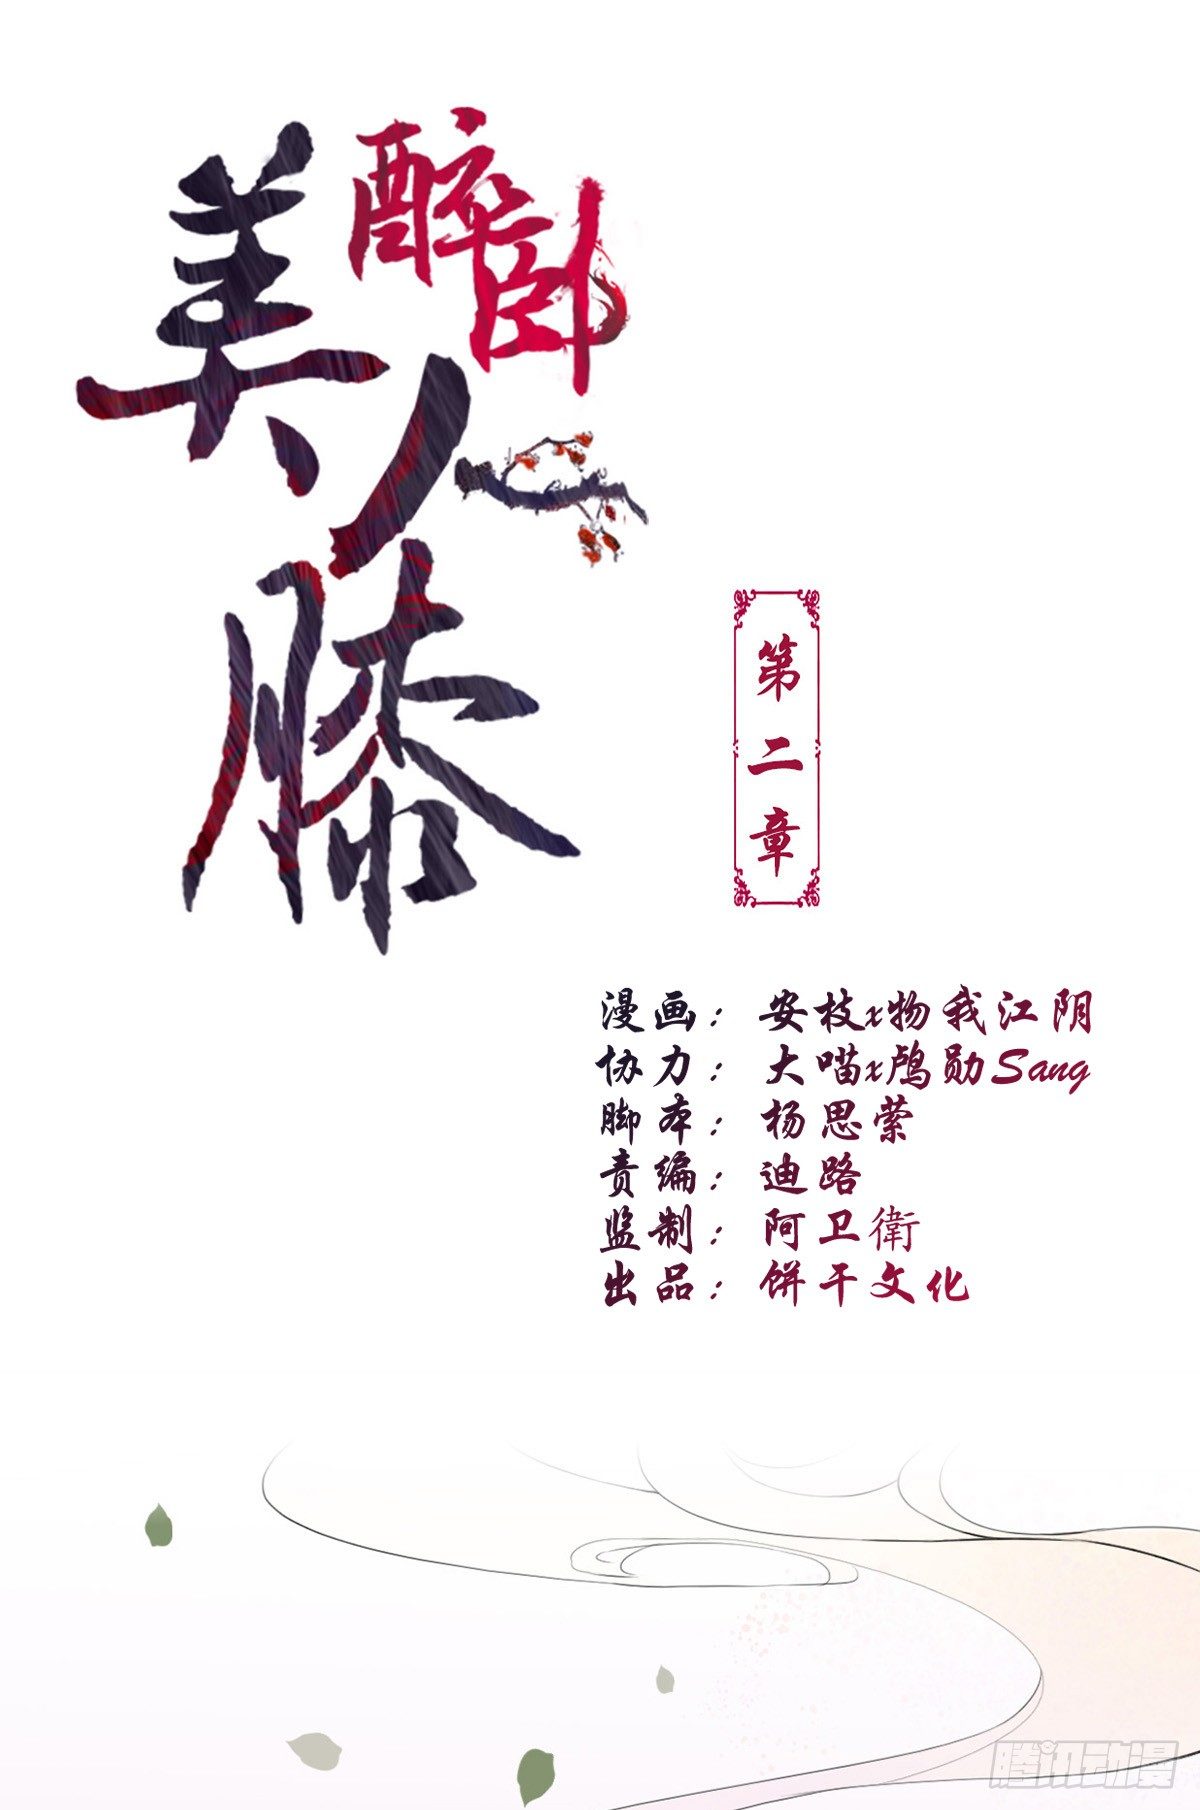 醉卧
美人膝
第二章
漫画：安枝x物我江阴
协力：大喵x鸬勋Sang
脚本：杨思萦
责编：迪路
监制：阿卫衛
出品：饼干文化
腾讯动漫